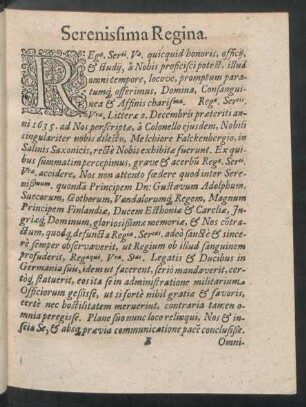 Serenissima Regina.
REgæ. Serti. Væ. quicquid honoris, officij,
& studij, à Nobis proficisci potest, illud
omni tempore, locove, promptum para-
tumq́; offerimus, Domina, Consangui-
nea & Affinis charisma. Regæ. Sertis.
Vræ. Litteræ 2. Decembris præteriti an-
ni 1635. ad Nos perscriptæ, à Colonello ejusdem, Nobili
singulariter nobis dilecto, Melchiore Falckenbergio, in
Salinis Saxonicis, rectè Nobis exhibitæ fuerunt. Ex qui
bus summatim percepimus, grave & acerbū Regæ. Serti.
Vræ. accidere, Nos non attento fœdere quod inter Sere-
nissimum, quondã Principem Dn: Gustavum Adolphum,
Suecorum, Gothorum, Vandalorumq́; Regem, Magnum
Principem Finlandiæ, Ducem Esthoniæ & Careliæ, In-
griæq́; Dominum, gloriosissimæ memoriæ, & Nos cõtra-
ctum, quodq́; defuncta Regia. Sertas. adeò sanctè & since-
rè semper observaverit, ut Regium ob illud sanguinem
profuderit, Regnaq́ue. Vræ. Stis. Legatis & Ducibus in
Germania suis, idem ut facerent, seriò mandaverit, cer-
toq́; statuerit, eos ita se in administratione militarium
Officiorum gessisse, ut si fortè nihil gratiæ & favoris,
certè nec hostilitatem meruerint, contraria tamen om-
nia peregisse. Planè suo nunc loco relinqui, Nos & in-
scia Se, & absq́; prævia communicatione pacē conclusisse.
B Omni-